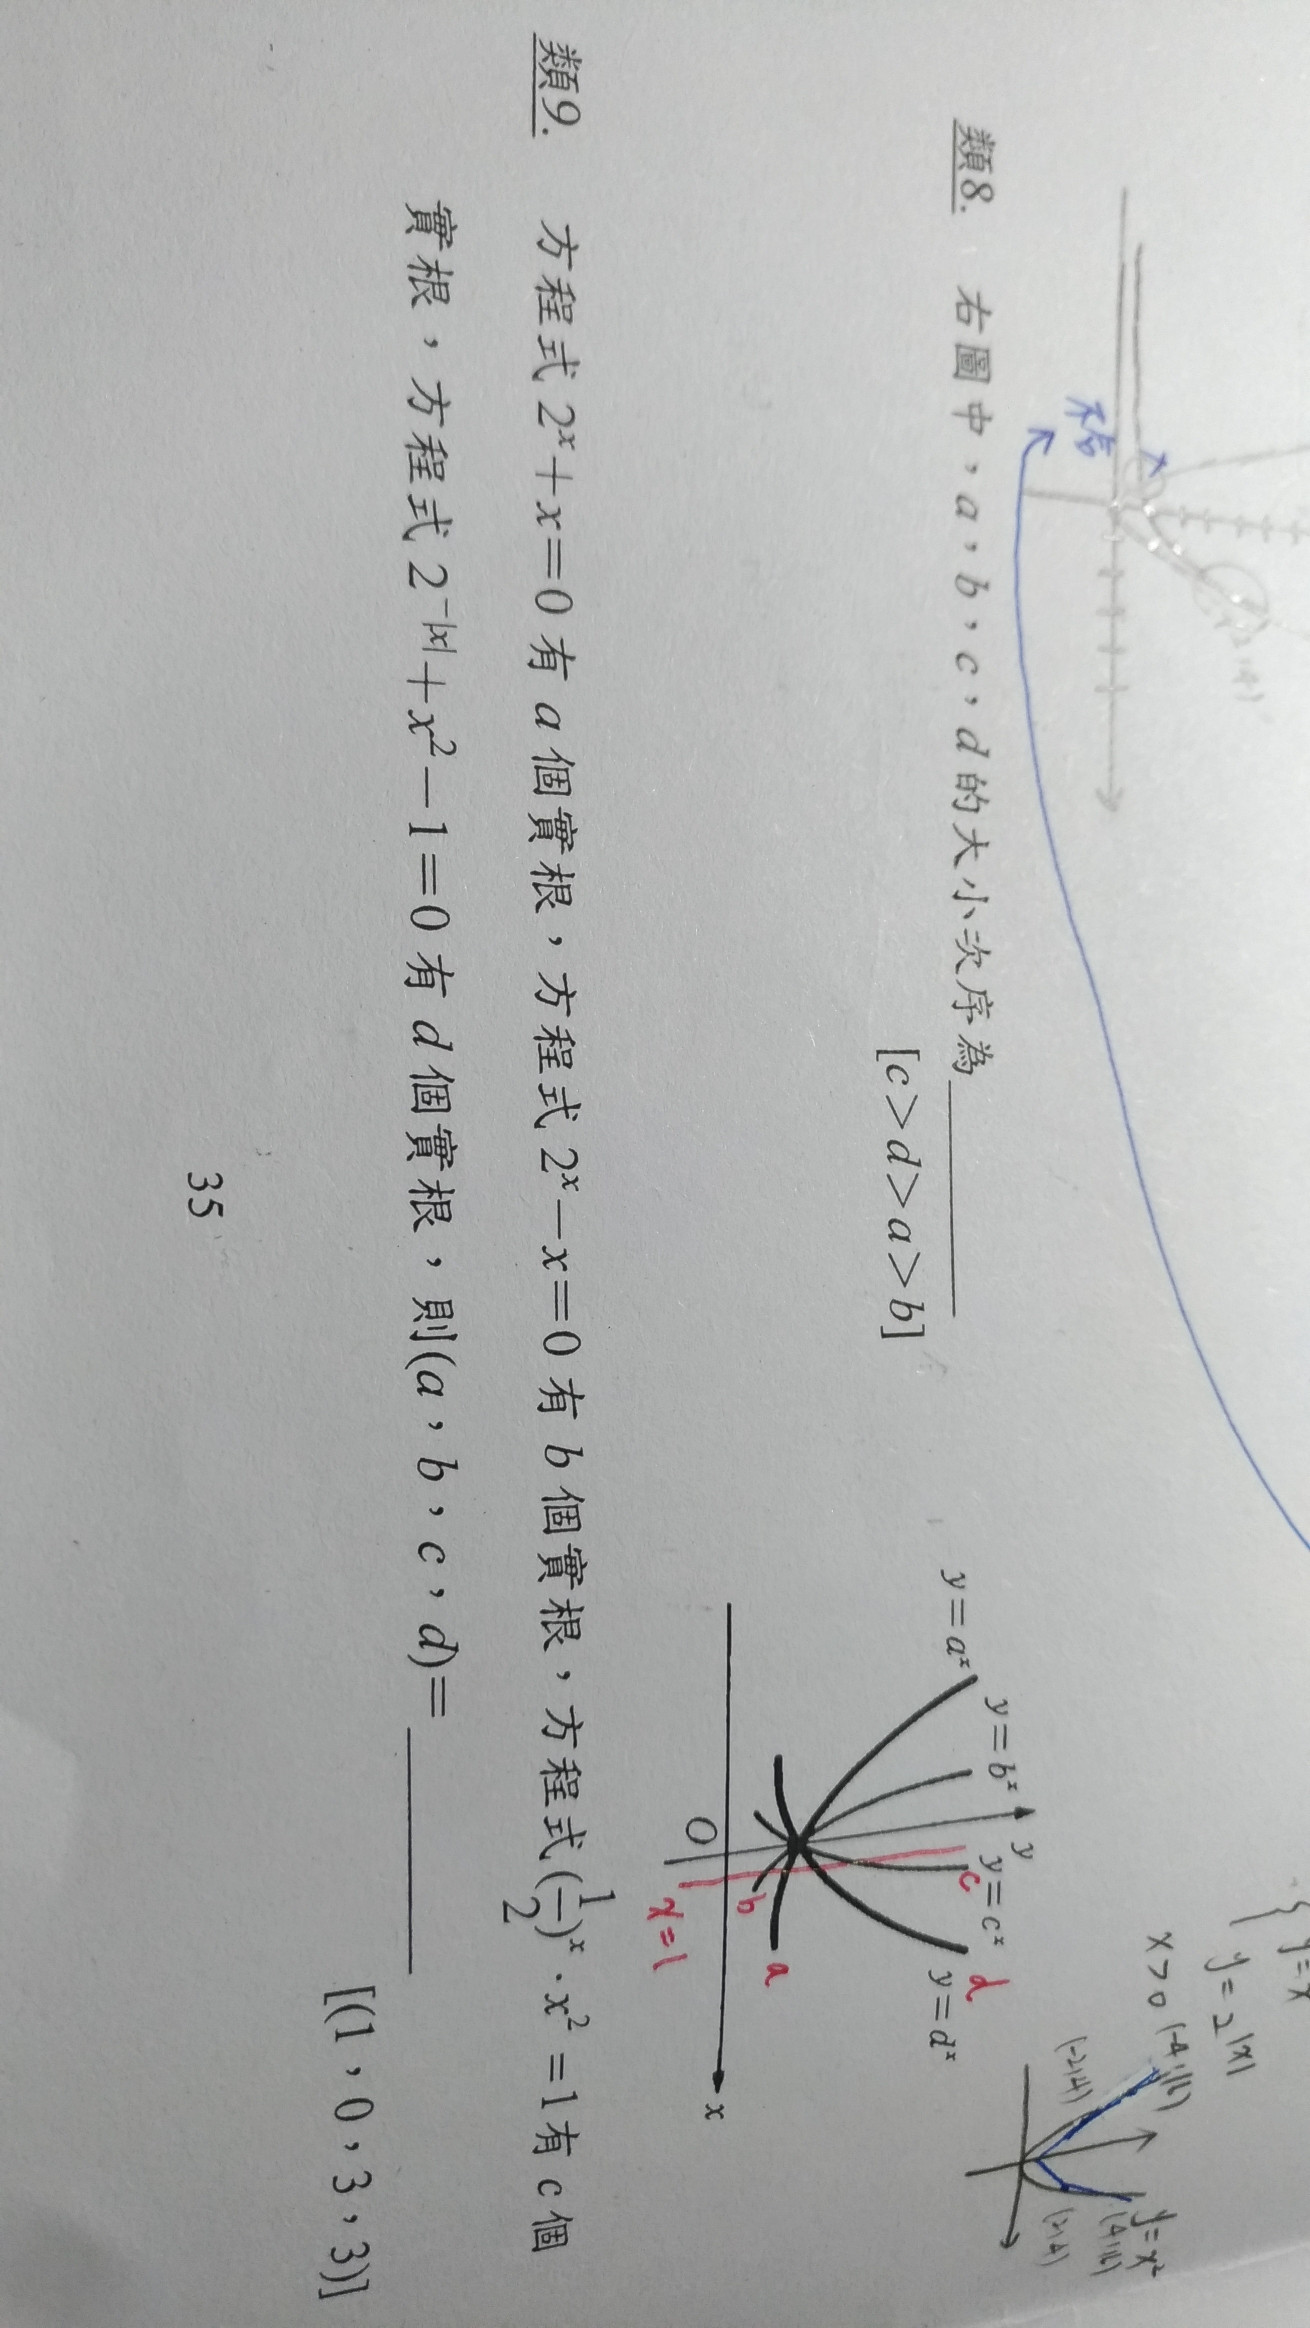 y=x
y=2^|x|
x>0
(-4,16)
(-2,4)
y=x²
(4,16)
(2,4)
(2,4)
類8. 右圖中，a，b，c，d的大小次序為
[c>d>a>b]
y=a^x
y=b^x
y
y=c^x
y=d^x
c
d
b
a
O
x
x=1
類9. 方程式2^x+x=0有a個實根，方程式2^x-x=0有b個實根，方程式(1/2)^x·x²=1有c個
實根，方程式2^-|x|+x²-1=0有d個實根，則(a，b，c，d)=
[(1，0，3，3)]
35